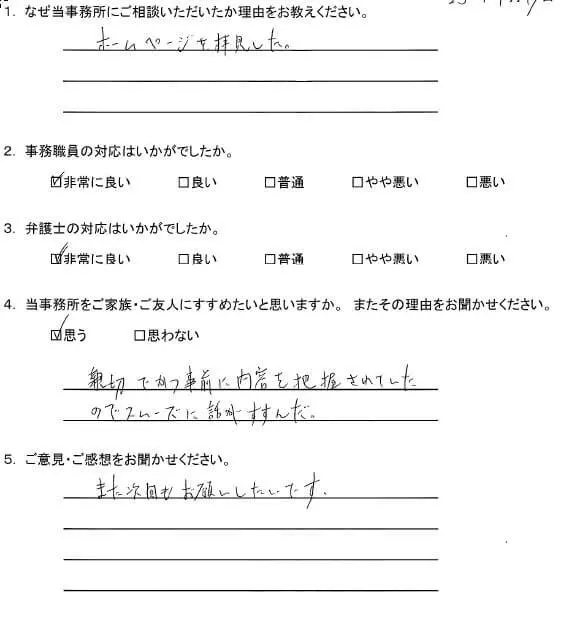 1. なぜ当事務所にご相談いただいたか理由をお教えください。
ホームページを拝見した。
2. 事務職員の対応はいかがでしたか。
☑非常に良い □良い □普通 □やや悪い □悪い
3. 弁護士の対応はいかがでしたか。
☑非常に良い □良い □普通 □やや悪い □悪い
4. 当事務所をご家族・ご友人にすすめたいと思いますか。 またその理由をお聞かせください。
☑思う □思わない
親切でかつ事前に内容を把握されていた
のでスムーズに話がすすんだ。
5. ご意見・ご感想をお聞かせください。
また次回もお願いしたいです。